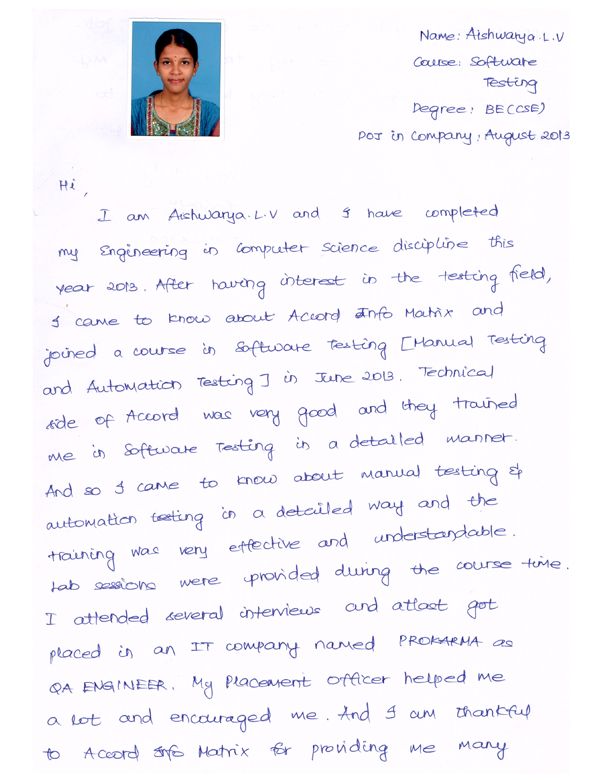 Name: Aishwarya.L.V
Course: Software
Testing
Degree: BE(CSE)
DOJ in Company: August 2013
Hi,
I am Aishwarya.L.V and I have completed
my Engineering in Computer Science discipline this
year 2013. After having interest in the testing field,
I came to know about Accord Info Matrix and
joined a course in Software Testing [Manual Testing
and Automation Testing] in June 2013. Technical
side of Accord was very good and they trained
me in Software Testing in a detailed manner.
And so I came to know about manual testing &
automation testing in a detailed way and the
training was very effective and understandable.
Lab sessions were provided during the course time.
I attended several interviews and atlast got
placed in an IT company named PROKARMA as
QA ENGINEER. My Placement Officer helped me
a lot and encouraged me. And I am thankful
to Accord Info Matrix for providing me many